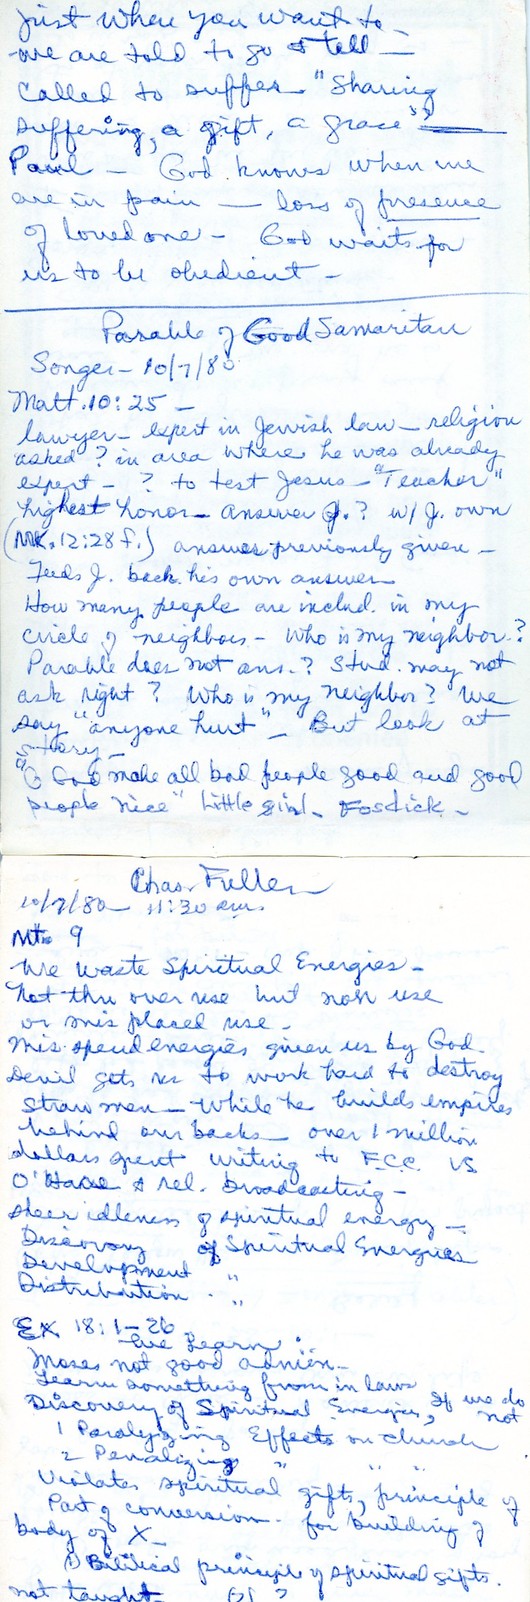 just when you want to
we are told to go & tell —
Called to suffer "Sharing
suffering, a gift, a grace"
Paul — God knows when we
are in pain — loss of presence
of loved one — God waits for
us to be obedient —
Parable of Good Samaritan
Songer — 10/7/80
Matt. 10:25 —
lawyer — expert in Jewish law — religion
asked ? in area where he was already
expert — ? to test Jesus — "Teacher"
highest honor — answer J. ? w/ J. own
(MK. 12:28 f.) answer previously given —
Feeds J. back his own answer
How many people are includ. in my
circle of neighbors — Who is my neighbor?
Parable does not ans. ? Stud. may not
ask right ? Who is my neighbor? We
say "anyone hurt" — But look at
story —
"O God make all bad people good and good
people nice" little girl — Fosdick —
Chas. Fuller
10/7/80 — 11:30 am.
Mt. 9
We waste Spiritual Energies —
Not thru over use but non use
or mis placed use —
Mis-spend energies given us by God
Devil gets us to work hard to destroy
straw men — while he builds empires
behind our backs — over 1 million
dollars spent writing to F.C.C. vs
O'Hare & rel. broadcasting —
sheer idleness of spiritual energy —
Discovery of Spiritual Energies
Development "
Distribution "
EX. 18:1-26
We Learn :
Moses not good admin. —
Learn something from in laws
Discovery of Spiritual Energies, If we do not
1 Paralyzing Effects on church
2 Penalizing " " "
Violates spiritual gifts, principle of
Part of conversion — for building of
body of X —
1) Biblical principle of spiritual gifts.
not taught —